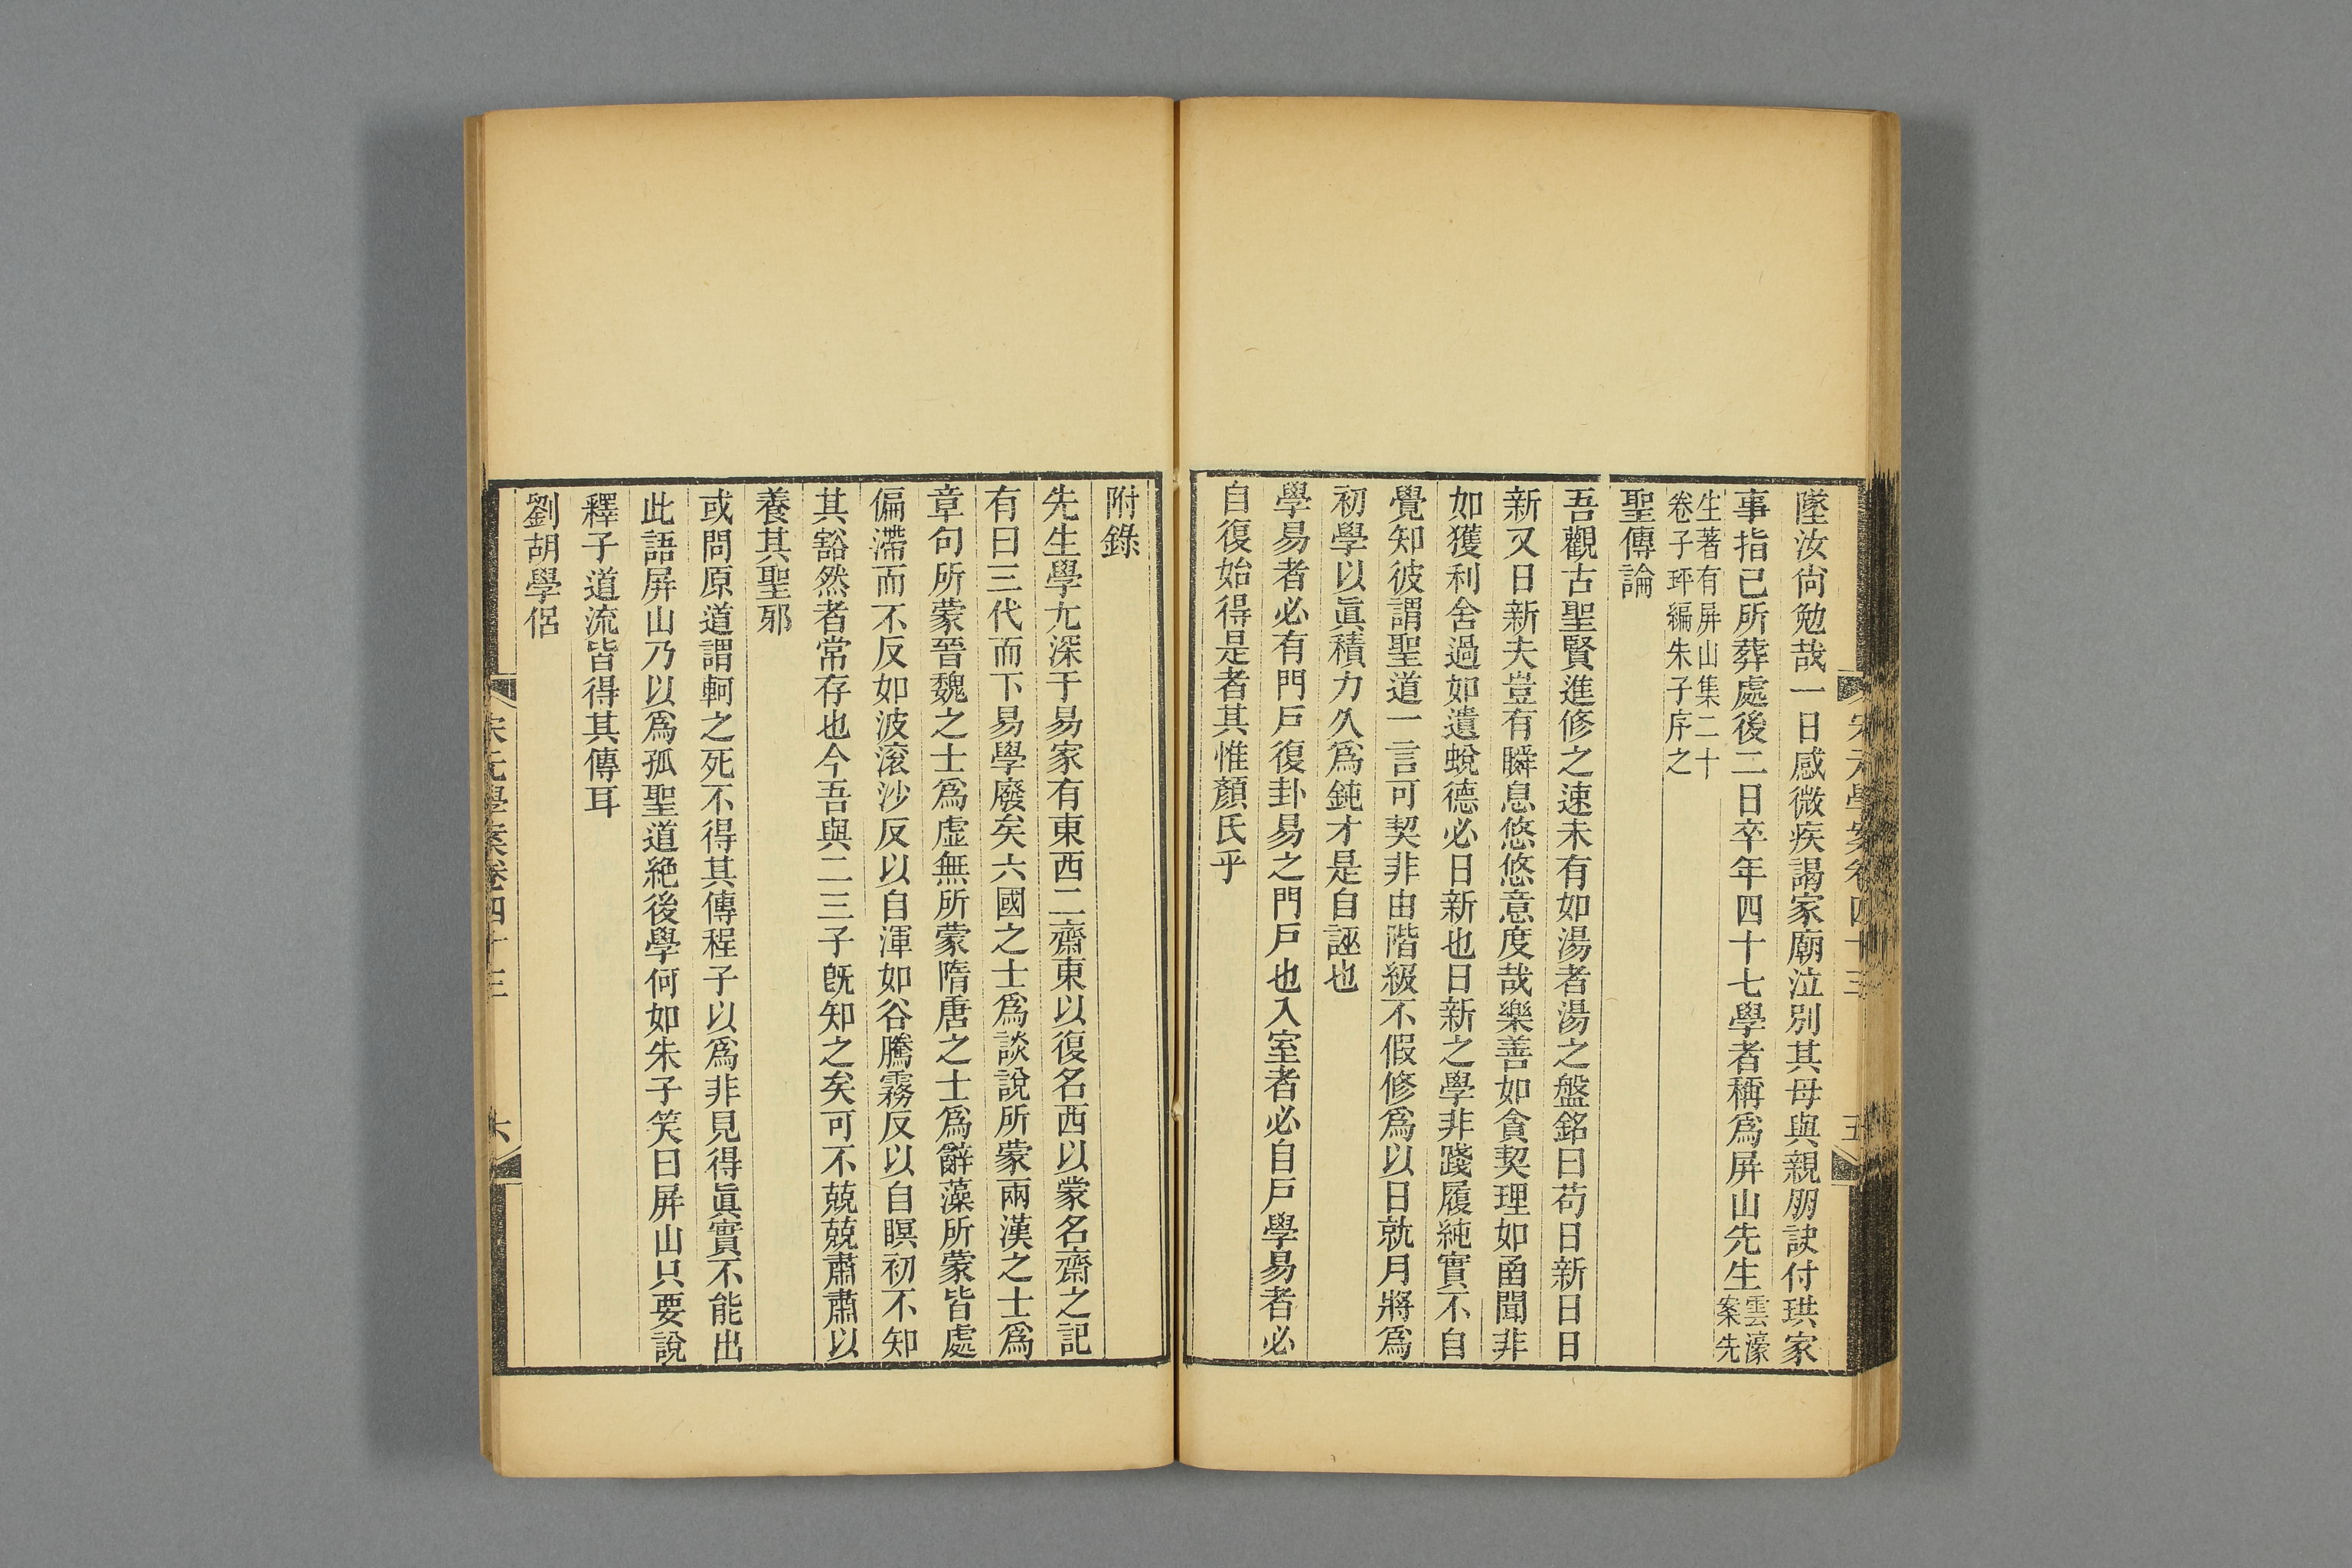 宋元學案卷四十三
五
墜汝尙勉哉一日感微疾謁家廟泣別其母與親朋訣付珙家
事指己所葬處後二日卒年四十七學者稱爲屏山先生雲濠
案先
生著有屏山集二十
卷子玶編朱子序之
聖傳論
吾觀古聖賢進修之速未有如湯者湯之盤銘曰苟日新日日
新又日新夫豈有瞬息悠悠意度哉樂善如貪契理如函聞非
如獲利舍過如遺蛻德必日新也日新之學非踐履純實不自
覺知彼謂聖道一言可契非由階級不假修爲以日就月將爲
初學以眞積力久爲鈍才是自誣也
學易者必有門戶復卦易之門戶也入室者必自戶學易者必
自復始得是者其惟顏氏乎
附錄
先生學尤深于易家有東西二齋東以復名西以蒙名齋之記
有曰三代而下易學廢矣六國之士爲談說所蒙兩漢之士爲
章句所蒙晉魏之士爲虛無所蒙隋唐之士爲辭藻所蒙皆處
偏滯而不反如波滾沙反以自渾如谷騰霧反以自瞑初不知
其豁然者常存也今吾與二三子旣知之矣可不兢兢肅肅以
養其聖邪
或問原道謂軻之死不得其傳程子以爲非見得眞實不能出
此語屏山乃以爲孤聖道絶後學何如朱子笑曰屏山只要說
釋子道流皆得其傳耳
劉胡學侶
宋元學案卷四十三
六